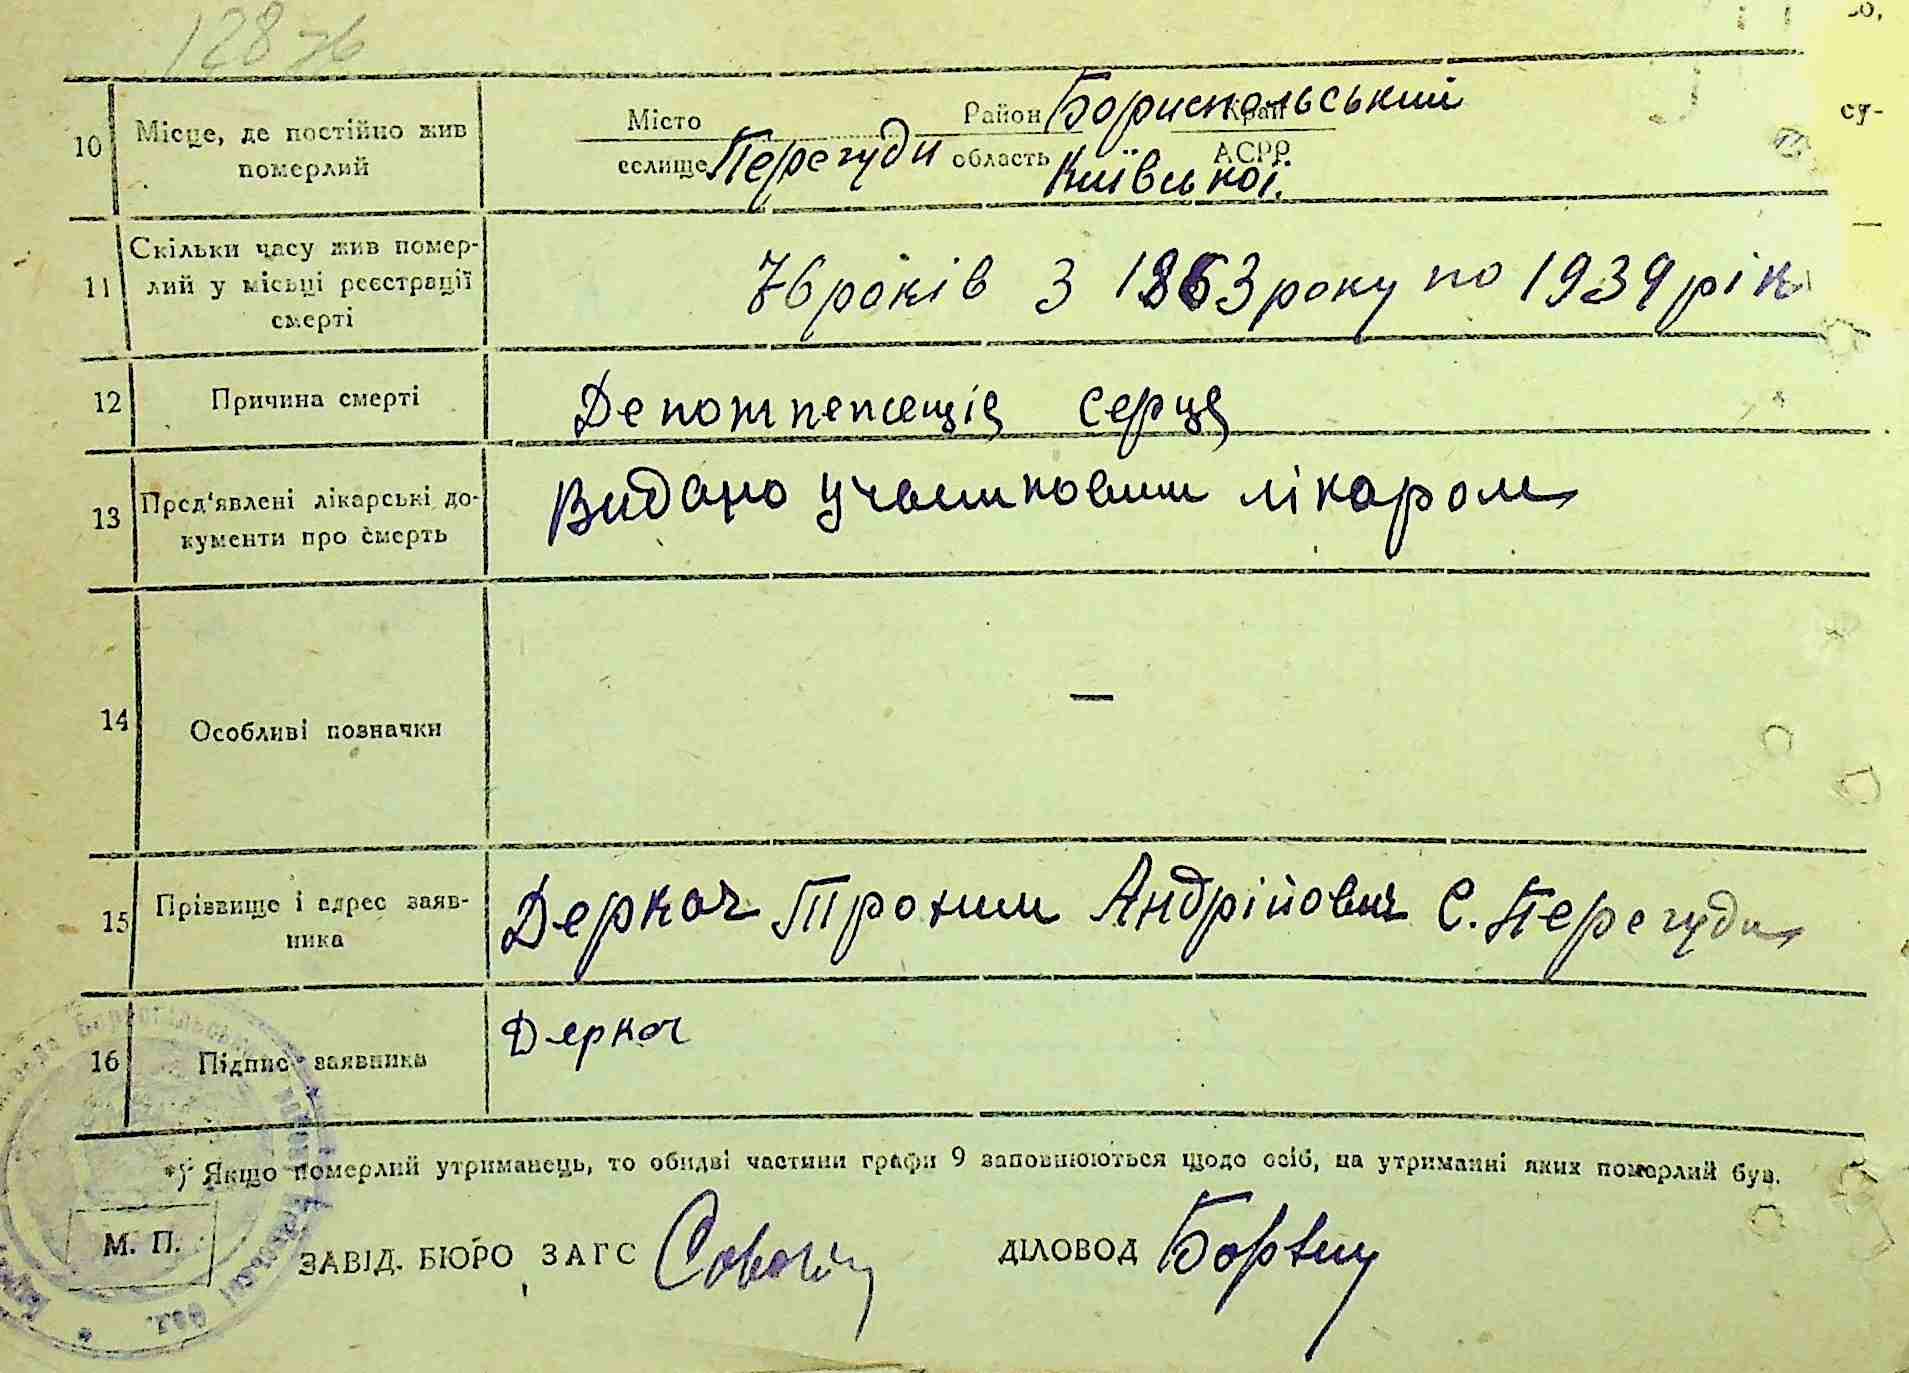 128 зб
10 Місце, де постійно жив померлий
Місто Район Бориспольський Край
селище Перегуди область Київської АСРР
11 Скільки часу жив помер-
лий у місці реєстрації
смерті
76 років з 1863 року по 1939 рік
12 Причина смерті
Декомпенсація серця
13 Пред'явлені лікарські до-
кументи про смерть
Видано участковим лікаром
14 Особливі позначки
—
15 Прізвище і адрес заяв-
ника
Деркач Трохим Андрійович С. Перегуди
16 Підпис заявника
Деркач
*) Якщо померлий утриманець, то обидві частини графи 9 заповнюються щодо осіб, на утриманні яких померлий був.
М. П.
ЗАВІД. БЮРО ЗАГС
ДІЛОВОД
су-